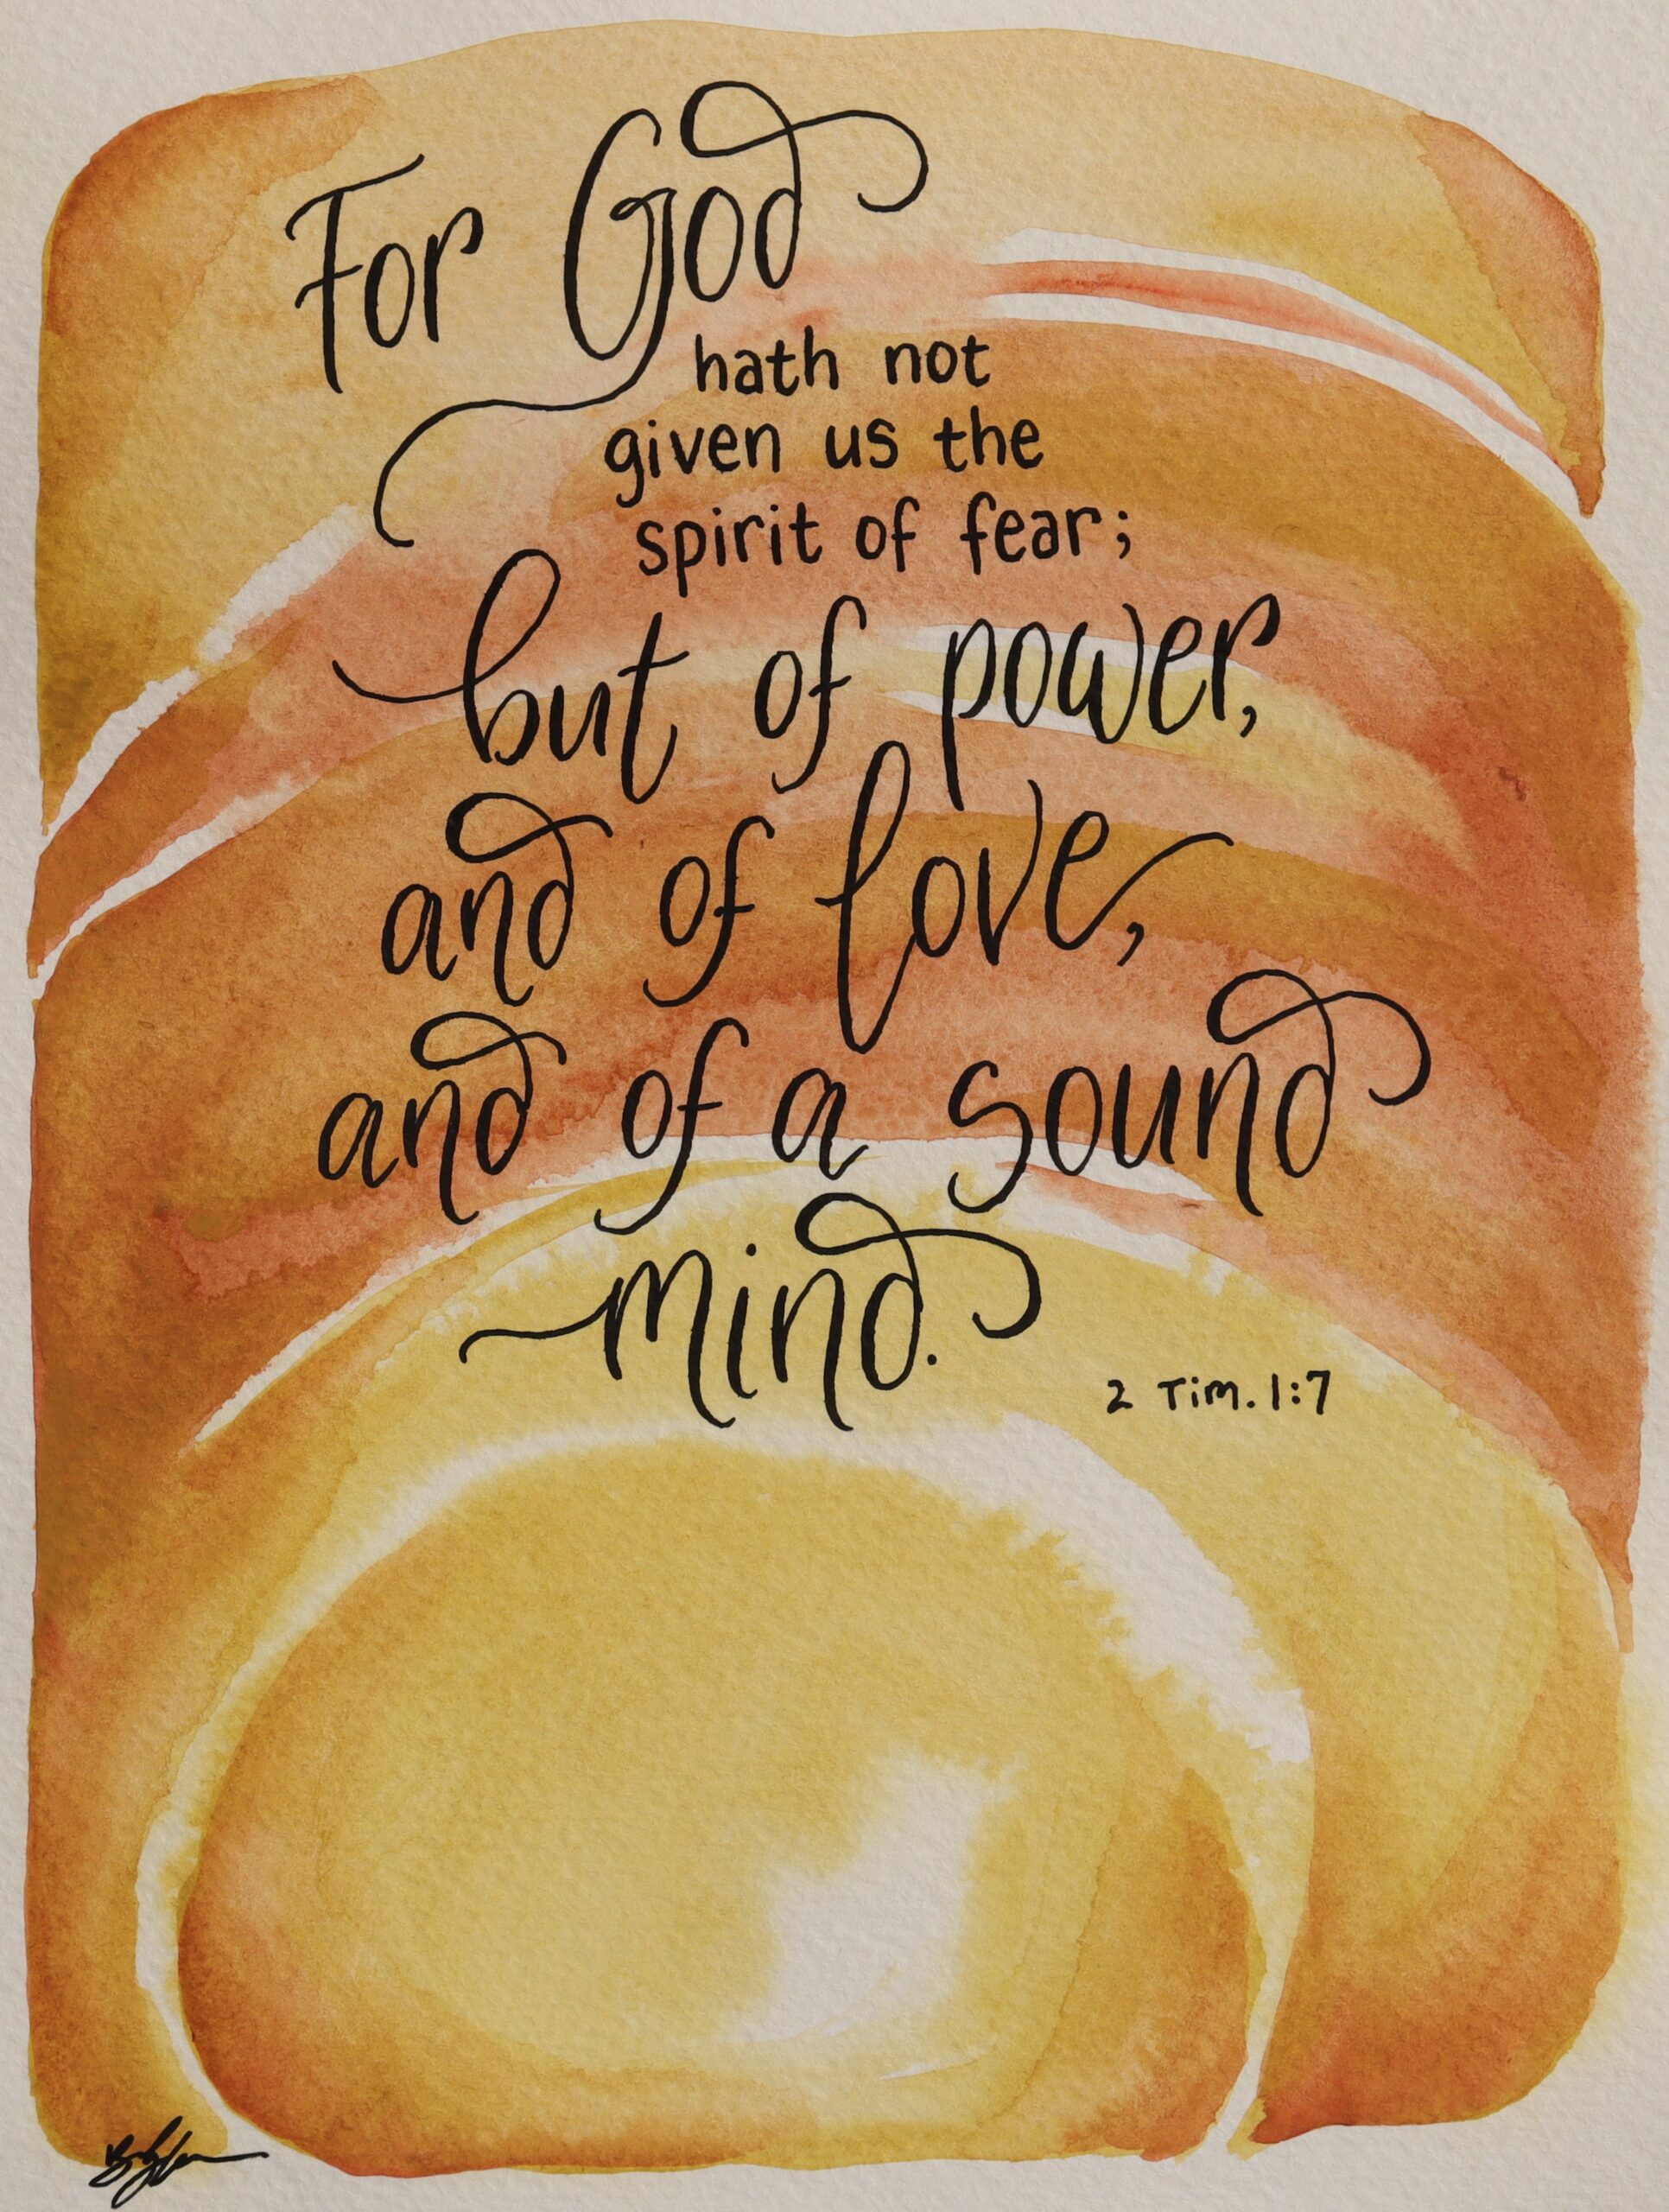 For God
hath not
given us the
spirit of fear;
but of power,
and of love,
and of a sound
mind.
2 Tim. 1:7